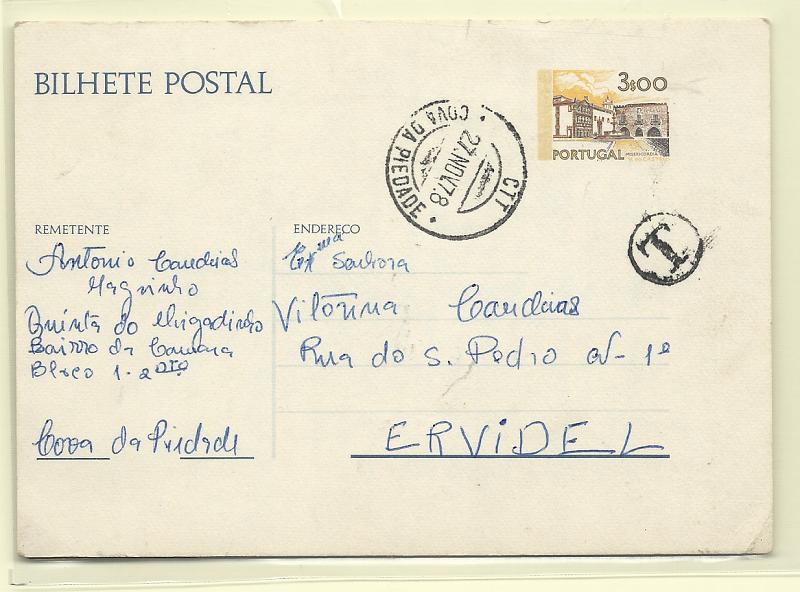 BILHETE POSTAL
3$00
PORTUGAL
MISERICÓRDIA
CTT
COVA DA PIEDADE
27.NOV.78
T
REMETENTE
Antonio Candeias
Magrinho
Quinta do Chegadinho
Bairro da Camara
Bloco 1-2º
Cova da Piedade
ENDEREÇO
Exma Senhora
Vitorina Candeias
Rua do S. Pedro Nº 1º
ERVIDEL